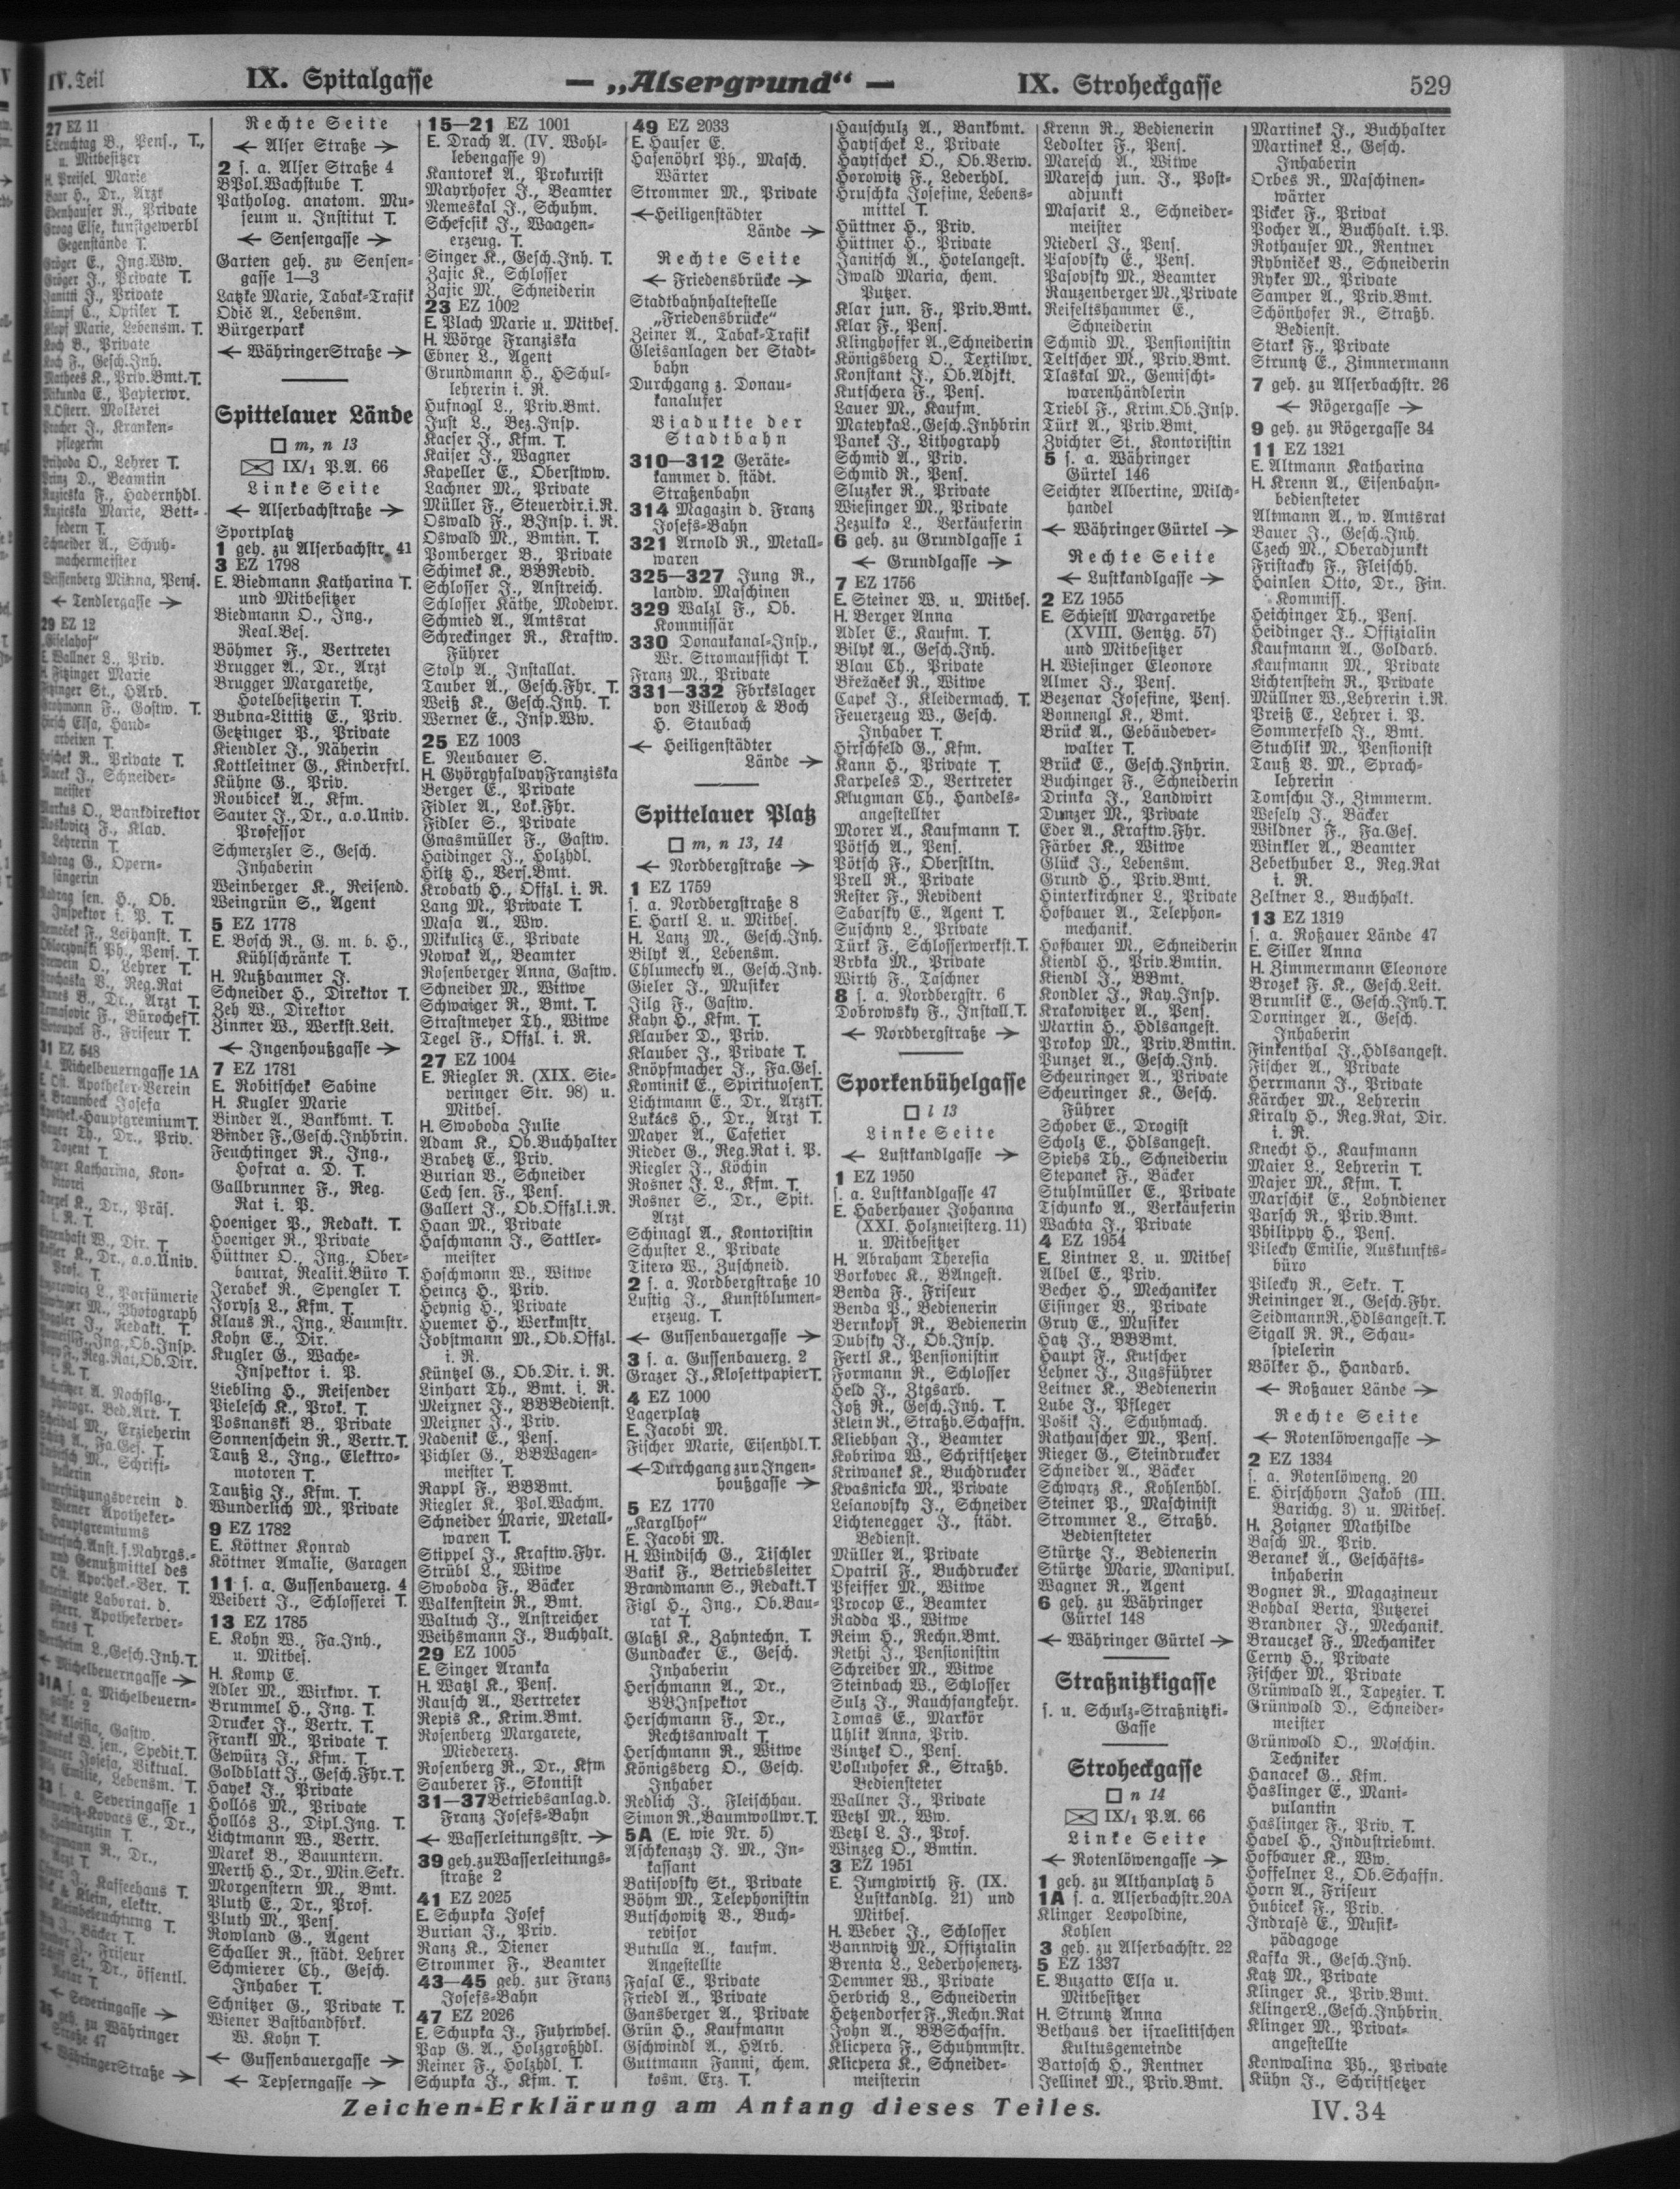 IV. Teil
IX. Spitalgasse
— „Alsergrund“ —
IX. Stroheckgasse
529
27 EZ 11
E. Leuchtag B., Pens., T.,
u. Mitbesitzer
H. Preisel Marie
Baar H., Dr., Arzt
Edenhauser R., Private
Groag Else, kunstgewerbl
Gegenstände T.
Gröger E., Ing.Ww.
Gröger J., Private T.
Janitti J., Private
Kämpf C., Optiker T.
Klopf Marie, Lebensm. T.
Koch B., Private
Koch F., Gesch.Inh.
Mathees K., Priv.Bmt. T.
Mikunda E., Papierwr.
N.Österr. Molkerei
Pracher J., Kranken-
pflegerin
Prihoda O., Lehrer T.
Prinz D., Beamtin
Ruzicska F., Hadernhdl.
Ruzicska Marie, Bett-
federn T.
Schneider A., Schuh-
machermeister
Weissenberg Minna, Pens.
← Tendlergasse →
29 EZ 12
„Giselahof“
E. Wallner L., Priv.
H. Fitzinger Marie
Fitzinger St., HArb.
Grohmann F., Gastw. T.
Hirsch Elsa, Hand-
arbeiten T.
Private T.
Macek J., Schneider-
meister
Markus O., Bankdirektor
Moskovicz F., Klav.
Lehrerin T.
Nadrag G., Opern-
sängerin
Nadrag sen. H., Ob.
Inspektor i. P. T.
Nemeček F., Leihanst. T.
Ph., Pens. T.
O., Lehrer T.
Prochaska V., Reg.Rat
B., Dr., Arzt T.
Tomasovic F., Bürochef T.
F., Friseur T.
31 EZ 548
s. a. Michelbeuerngasse 1A
E. Öst. Apotheker-Verein
H. Braunbeck Josefa
Apothek.-Hauptgremium T.
Bauer Th., Dr., Priv.
Dozent T.
Berger Katharina, Kon-
ditorei
K., Dr., Präs.
i. R. T.
W., Dir. T.
K., Dr., a.o.Univ.
Prof. T.
L., Parfümerie
M., Photograph
J., Redakt. T.
Ing., Ob.Insp.
F., Reg.Rat, Ob.Dir.
i. R. T.
A. Nochflg.,
photogr. Bed.Art. T.
Scheidal M., Erzieherin
Schütz A., Fa.Ges. T.
M., Schrift-
stellerin
Unterstützungsverein d.
Wiener Apotheker-
Hauptgremiums
Untersuch.Anst. f. Nahrgs.-
und Genußmittel des
Öst. Apothek.-Ver. T.
Vereinigte Laborat. d.
österr. Apothekerver-
eines T.
Wertheim L., Gesch.Inh. T.
← Michelbeuerngasse →
31A s. a. Michelbeuern-
gasse 2
Aloisia, Gastw.
W. sen., Spedit. T.
Josefa, Viktual.
Emilie, Lebensm. T.
33 s. a. Severingasse 1
E., Dr.,
Zahnärztin T.
Bergmann R., Dr.,
Arzt T.
J., Kaffeehaus T.
& Klein, elektr.
Kleinbeleuchtung T.
J., Bäcker T.
J., Friseur
St., Dr., öffentl.
Notar T.
← Severingasse →
35 geh. zu Währinger
Straße 47
← WähringerStraße →
Rechte Seite
← Alser Straße →
2 s. a. Alser Straße 4
BPol.Wachstube T.
Patholog. anatom. Mu-
seum u. Institut T.
← Sensengasse →
Garten geh. zu Sensen-
gasse 1—3
Latzke Marie, Tabak-Trafik
Odič A., Lebensm.
Bürgerpark
← WähringerStraße →
Spittelauer Lände
□ m, n 13
✉ IX/1 P.A. 66
Linke Seite
← Alserbachstraße →
Sportplatz
1 geh. zu Alserbachstr. 41
3 EZ 1798
E. Biedmann Katharina T.
und Mitbesitzer
Biedmann O., Ing.,
Real.Bes.
Böhmer F., Vertreter
Brugger A., Dr., Arzt
Brugger Margarethe,
Hotelbesitzerin T.
Bubna-Littitz E., Priv.
Getzinger P., Private
Kiendler J., Näherin
Kottleitner G., Kinderfrl.
Kühne G., Priv.
Roubicek A., Kfm.
Sauter J., Dr., a.o.Univ.
Professor
Schmerzler S., Gesch.
Inhaberin
Weinberger K., Reisend.
Weingrün S., Agent
5 EZ 1778
E. Bosch R., G. m. b. H.,
Kühlschränke T.
H. Nußbaumer J.
Schneider H., Direktor T.
Zeh W., Direktor
Zinner W., Werkst.Leit.
← Ingenhoußgasse →
7 EZ 1781
E. Robitschek Sabine
H. Kugler Marie
Binder A., Bankbmt. T.
Binder F., Gesch.Inhbrin.
Feuchtinger R., Ing.,
Hofrat a. D. T.
Gallbrunner F., Reg.
Rat i. P.
Hoeniger P., Redakt. T.
Hoeniger R., Private
Hüttner O., Ing., Ober-
baurat, Realit.Büro T.
Jerabek R., Spengler T.
Jorysz L., Kfm. T.
Klaus R., Ing., Baumstr.
Kohn E., Dir.
Kugler G., Wache-
Inspektor i. P.
Liebling H., Reisender
Pielesch K., Prok. T.
Posnanski B., Private
Sonnenschein R., Vertr. T.
Tauß L., Ing., Elektro-
motoren T.
Taußig J., Kfm. T.
Wunderlich M., Private
9 EZ 1782
E. Köttner Konrad
Köttner Amalie, Garagen
11 s. a. Gussenbauerg. 4
Weibert J., Schlosserei T.
13 EZ 1785
E. Kohn W., Fa.Inh.,
u. Mitbes.
H. Komp E.
Adler M., Wirkwr. T.
Brummel H., Ing. T.
Drucker J., Vertr. T.
Frankl M., Private T.
Gewürz J., Kfm. T.
Goldblatt J., Gesch.Fhr. T.
Hayek J., Private
Hollós M., Private
Hollós Z., Dipl.Ing. T.
Lichtmann W., Vertr.
Marek B., Bauuntern.
Merth H., Dr., Min.Sekr.
Morgenstern M., Bmt.
Pluth E., Dr., Prof.
Pluth M., Pens.
Rowland G., Agent
Schaller R., städt. Lehrer
Schmierer Ch., Gesch.
Inhaber T.
Schnitzer G., Private T.
Wiener Bastbandfbrk.
W. Kohn T.
← Gussenbauergasse →
← Tepserngasse →
15—21 EZ 1001
E. Drach A. (IV. Wohl-
lebengasse 9)
Kantorek A., Prokurist
Mayrhofer J., Beamter
Nemeskal J., Schuhm.
Schefcsik J., Waagen-
erzeug. T.
Singer K., Gesch.Inh. T.
Zajic K., Schlosser
Zajic M., Schneiderin
23 EZ 1002
E. Plach Marie u. Mitbes.
H. Wörge Franziska
Ebner L., Agent
Grundmann H., HSchul-
lehrerin i. R.
Hufnagl L., Priv.Bmt.
Just L., Bez.Insp.
Kacser J., Kfm. T.
Kaiser J., Wagner
Kapeller E., Oberstww.
Lachner M., Private
Müller F., Steuerdir.i.R.
Oswald F., BInsp. i. R.
Oswald M., Bmtin. T.
Pomberger B., Private
Schimek K., BBRevid.
Schlosser J., Anstreich.
Schlosser Käthe, Modewr.
Schmied A., Amtsrat
Schreckinger R., Kraftw.
Führer
Stolp A., Installat.
Tauber A., Gesch.Fhr. T.
Weiß K., Gesch.Inh. T.
Werner E., Insp.Ww.
25 EZ 1003
E. Neubauer S.
H. GyörgyfalvayFranziska
Berger E., Private
Fidler A., Lok.Fhr.
Fidler S., Private
Gnasmüller F., Gastw.
Haidinger J., Holzhdl.
Hiltz H., Vers.Bmt.
Krobath H., Offzl. i. R.
Lang M., Private T.
Masa A., Ww.
Mikulicz E., Private
Nowak A., Beamter
Rosenberger Anna, Gastw.
Schneider M., Witwe
Schwaiger R., Bmt. T.
Strastmeyer Th., Witwe
Tegel F., Offzl. i. R.
27 EZ 1004
E. Riegler R. (XIX. Sie-
veringer Str. 98) u.
Mitbes.
H. Swoboda Julie
Adam K., Ob.Buchhalter
Brabetz E., Priv.
Burian V., Schneider
Cech sen. F., Pens.
Gallert J., Ob.Offzl.i.R.
Haan M., Private
Haschmann J., Sattler-
meister
Haschmann W., Witwe
Heincz H., Priv.
Heynig H., Private
Huemer H., Werkmstr.
Jobstmann M., Ob.Offzl.
i. R.
Küntzel G., Ob.Dir. i. R.
Linhart Th., Bmt. i. R.
Meixner J., BBBedienst.
Meixner J., Priv.
Nadenik E., Pens.
Pichler G., BBWagen-
meister T.
Rappl F., BBBmt.
Riegler K., Pol.Wachm.
Schneider Marie, Metall-
waren T.
Stippel J., Kraftw.Fhr.
Strübl L., Witwe
Swoboda F., Bäcker
Walkenstein R., Bmt.
Waltuch J., Anstreicher
Weihsmann J., Buchhalt.
29 EZ 1005
E. Singer Aranka
H. Watzl K., Pens.
Rausch A., Vertreter
Repis K., Krim.Bmt.
Rosenberg Margarete,
Miedererz.
Rosenberg R., Dr., Kfm
Sauberer F., Skontist
31—37Betriebsanlag.d.
Franz Josefs-Bahn
← Wasserleitungsstr. →
39 geh.zuWasserleitungs-
straße 2
41 EZ 2025
E. Schupka Josef
Burian J., Priv.
Ranz K., Diener
Strommer F., Beamter
43—45 geh. zur Franz
Josefs-Bahn
47 EZ 2026
E. Schupka J., Fuhrwbes.
Pap G. A., Holzgroßhdl.
Reiner F., Holzhdl. T.
Schupka J., Kfm. T.
49 EZ 2033
E. Hauser E.
Hasenöhrl Ph., Masch.
Wärter
Strommer M., Private
← Heiligenstädter
Lände →
Rechte Seite
← Friedensbrücke →
Stadtbahnhaltestelle
„Friedensbrücke“
Zeiner A., Tabak-Trafik
Gleisanlagen der Stadt-
bahn
Durchgang z. Donau-
kanalufer
Viadukte der
Stadtbahn
310—312 Geräte-
kammer d. städt.
Straßenbahn
314 Magazin d. Franz
Josefs-Bahn
321 Arnold R., Metall-
waren
325—327 Jung R.,
landw. Maschinen
329 Walzl F., Ob.
Kommissär
330 Donaukanal-Insp.,
Wr. Stromaufsicht T.
Franz M., Private
331—332 Fbrkslager
von Villeroy & Boch
H. Staubach
← Heiligenstädter
Lände →
Spittelauer Platz
□ m, n 13, 14
← Nordbergstraße →
1 EZ 1759
s. a. Nordbergstraße 8
E. Hartl L. u. Mitbes.
H. Lanz M., Gesch.Inh.
Bilyk A., Lebensm.
Chlumecky A., Gesch.Inh.
Gieler J., Musiker
Jilg F., Gastw.
Kahn H., Kfm. T.
Klauber D., Priv.
Klauber J., Private T.
Knöpfmacher J., Fa.Ges.
Kominik E., Spirituosen T.
Lichtmann E., Dr., Arzt T.
Lukács H., Dr., Arzt T.
Mayer A., Cafetier
Rieder G., Reg.Rat i. P.
Riegler J., Köchin
Rosner J. L., Kfm. T.
Rosner S., Dr., Spit.
Arzt
Schinagl A., Kontoristin
Schuster L., Private
Titera W., Zuschneid.
2 s. a. Nordbergstraße 10
Lustig J., Kunstblumen-
erzeug. T.
← Gussenbauergasse →
3 s. a. Gussenbauerg. 2
Grazer J., Klosettpapier T.
4 EZ 1000
Lagerplatz
E. Jacobi M.
Fischer Marie, Eisenhdl. T.
← Durchgang zur Ingen-
houßgasse →
5 EZ 1770
„Karglhof“
E. Jacobi M.
H. Windisch G., Tischler
Batik F., Betriebsleiter
Brandmann S., Redakt. T
Figl H., Ing., Ob.Bau-
rat T.
Glaßl K., Zahntechn. T.
Gundacker E., Gesch.
Inhaberin
Herschmann A., Dr.,
BBInspektor
Herschmann F., Dr.,
Rechtsanwalt T.
Herschmann R., Witwe
Königsberg O., Gesch.
Inhaber
Redlich J., Fleischhau.
Simon R., Baumwollwr. T.
5A (E. wie Nr. 5)
Aschkenazy J. M., In-
kassant
Batisovsky St., Private
Böhm M., Telephonistin
Butschowitz B., Buch-
revisor
Butulla A., kaufm.
Angestellte
Fasal E., Private
Friedl A., Private
Gansberger A., Private
Grün H., Kaufmann
Gschwindl A., HArb.
Guttmann Fanni, chem.
kosm. Erz. T.
Hauschulz A., Bankbmt.
Haytschek L., Private
Haytschek O., Ob.Verw.
Horowitz F., Lederhdl.
Hruschka Josefine, Lebens-
mittel T.
Hüttner H., Priv.
Hüttner H., Private
Janitsch A., Hotelangest.
Iwald Maria, chem.
Putzer.
Klar jun. F., Priv.Bmt.
Klar F., Pens.
Klinghoffer A., Schneiderin
Königsberg O., Textilwr.
Konstant J., Ob.Adjkt.
Kutschera F., Pens.
Lauer M., Kaufm.
MateykaL., Gesch.Inhbrin
Panek J., Lithograph
Schmid A., Priv.
Schmid R., Pens.
Sluzker R., Private
Wiesinger M., Private
Zezulka L., Verkäuferin
6 geh. zu Grundlgasse 1
← Grundlgasse →
7 EZ 1756
E. Steiner W. u. Mitbes.
H. Berger Anna
Adler E., Kaufm. T.
Bilyk A., Gesch.Inh.
Blau Ch., Private
Břežaček R., Witwe
Capek J., Kleidermach. T.
Feuerzeug W., Gesch.
Inhaber T.
Hirschfeld G., Kfm.
Kann H., Private T.
Karpeles D., Vertreter
Klugman Ch., Handels-
angestellter
Morer A., Kaufmann T.
Pötsch A., Pens.
Pötsch F., Oberstltn.
Prell R., Private
Rester F., Revident
Sabarsky E., Agent T.
Suschny L., Private
Türk F., Schlosserwerkst. T.
Vrbka M., Private
Wirth F., Taschner
8 s. a. Nordbergstr. 6
Dobrowsky F., Install. T.
← Nordbergstraße →
Sporkenbühelgasse
□ l 13
Linke Seite
← Lustkandlgasse →
1 EZ 1950
s. a. Lustkandlgasse 47
E. Haberhauer Johanna
(XXI. Holzmeisterg. 11)
u. Mitbesitzer
H. Abraham Theresia
Borkovec K., BAngest.
Benda F., Friseur
Benda P., Bedienerin
Bernkopf R., Bedienerin
Dubsky J., Ob.Insp.
Fertl K., Pensionistin
Formann R., Schlosser
Held J., Ztgsarb.
Joß R., Gesch.Inh. T.
Klein R., Straßb.Schaffn.
Kliebhan J., Beamter
Kobriwa W., Schriftsetzer
Kriwanek K., Buchdrucker
Kvasnicka M., Private
Lesanovsky J., Schneider
Lichtenegger J., städt.
Bedienst.
Müller A., Private
Opatril F., Buchdrucker
Pfeiffer M., Witwe
Procop E., Beamter
Radda P., Witwe
Reim H., Rechn.Bmt.
Rethi J., Pensionistin
Schreiber M., Witwe
Steinbach W., Schlosser
Sulz J., Rauchfangkehr.
Tomas E., Markör
Uhlik Anna, Priv.
Vintzek O., Pens.
Vollnhofer K., Straßb.
Bediensteter
Wallner J., Private
Wetzl M., Ww.
Wetzl L. J., Prof.
Winzeg O., Bmtin.
3 EZ 1951
E. Jungwirth F. (IX.
Lustkandlg. 21) und
Mitbes.
H. Weber J., Schlosser
Bannwitz M., Offizialin
Brenta L., Lederhosenerz.
Demmer W., Private
Herbrich L., Schneiderin
Hetzendorfer F., Rechn.Rat
John A., BBSchaffn.
Klicpera F., Schuhmmstr.
Klicpera K., Schneider-
meisterin
Krenn R., Bedienerin
Ledolter F., Pens.
Maresch A., Witwe
Maresch jun. J., Post-
adjunkt
Masarik L., Schneider-
meister
Niederl J., Pens.
Pasovsky E., Pens.
Pasovsky M., Beamter
Rauzenberger M., Private
Reifeltshammer E.,
Schneiderin
Schmid M., Pensionistin
Teltscher M., Priv.Bmt.
Tlaskal M., Gemischt-
warenhändlerin
Triebl F., Krim.Ob.Insp.
Türk A., Priv.Bmt.
Zvichter St., Kontoristin
5 s. a. Währinger
Gürtel 146
Seichter Albertine, Milch-
handel
← WähringerGürtel →
Rechte Seite
← Lustkandlgasse →
2 EZ 1955
E. Schiestl Margarethe
(XVIII. Gentzg. 57)
und Mitbesitzer
H. Wiesinger Eleonore
Almer J., Pens.
Bezenar Josefine, Pens.
Bonnengl K., Bmt.
Brück A., Gebäudever-
walter T.
Brück E., Gesch.Inhrin.
Buchinger F., Schneiderin
Drinka J., Landwirt
Dunzer M., Private
Eder A., Kraftw.Fhr.
Färber K., Witwe
Glück J., Lebensm.
Grund H., Priv.Bmt.
Hinterkirchner L., Private
Hofbauer A., Telephon-
mechanik.
Hofbauer M., Schneiderin
Kiendl H., Priv.Bmtin.
Kiendl J., BBmt.
Kondler J., Ray.Insp.
Krakowitzer A., Pens.
Martin H., Hdlsangest.
Prokop M., Priv.Bmtin.
Punzet A., Gesch.Inh.
Scheuringer A., Private
Scheuringer K., Gesch.
Führer
Schober E., Drogist
Scholz E., Hdlsangest.
Spiehs Th., Schneiderin
Stepanek F., Bäcker
Stuhlmüller E., Private
Tschunko A., Verkäuferin
Wachta J., Private
4 EZ 1954
E. Lintner L. u. Mitbes
Albel E., Priv.
Becher H., Mechaniker
Eisinger V., Private
Gruy E., Musiker
Hatz J., BBBmt.
Haupt F., Kutscher
Lehner J., Zugsführer
Leitner K., Bedienerin
Lube J., Pfleger
Posik J., Schuhmach.
Rathauscher M., Pens.
Rieger G., Steindrucker
Schneider A., Bäcker
Schwarz K., Kohlenhdl.
Steiner P., Maschinist
Strommer L., Straßb.
Bediensteter
Stürtze J., Bedienerin
Stürtze Marie, Manipul.
Wagner R., Agent
6 geh. zu Währinger
Gürtel 148
← Währinger Gürtel →
Straßnitzkigasse
s. u. Schulz-Straßnitzki-
Gasse
Stroheckgasse
□ n 14
✉ IX/1 P.A. 66
Linke Seite
← Rotenlöwengasse →
1 geh. zu Althanplatz 5
1A s. a. Alserbachstr.20A
Klinger Leopoldine,
Kohlen
3 geh. zu Alserbachstr. 22
5 EZ 1337
E. Buzatto Elsa u.
Mitbesitzer
H. Struntz Anna
Bethaus der israelitischen
Kultusgemeinde
Bartosch H., Rentner
Jellinek M., Priv.Bmt.
Martinek J., Buchhalter
Martinek L., Gesch.
Inhaberin
Orbes R., Maschinen-
wärter
Picker F., Privat
Pocher A., Buchhalt. i.P.
Rothauser M., Rentner
Rybniček V., Schneiderin
Ryker M., Private
Samper A., Priv.Bmt.
Schönhofer R., Straßb.
Bedienst.
Stark F., Private
Struntz E., Zimmermann
7 geh. zu Alserbachstr. 26
← Rögergasse →
9 geh. zu Rögergasse 34
11 EZ 1321
E. Altmann Katharina
H. Krenn A., Eisenbahn-
bediensteter
Altmann A., w. Amtsrat
Bauer J., Gesch.Inh.
Czech M., Oberadjunkt
Fristacky F., Fleischh.
Hainlen Otto, Dr., Fin.
Kommiss.
Heichinger Th., Pens.
Heidinger J., Offizialin
Kaufmann A., Goldarb.
Kaufmann M., Private
Lichtenstein R., Private
Müllner W., Lehrerin i.R.
Preiß E., Lehrer i. P.
Sommerfeld J., Bmt.
Stuchlik M., Pensionist
Tauß V. M., Sprach-
lehrerin
Tomschu J., Zimmerm.
Wesely J., Bäcker
Wildner F., Fa.Ges.
Winkler A., Beamter
Zebethuber L., Reg.Rat
i. R.
Zeltner L., Buchhalt.
13 EZ 1319
s. a. Roßauer Lände 47
E. Siller Anna
H. Zimmermann Eleonore
Brozek F. K., Gesch.Leit.
Brumlik E., Gesch.Inh. T.
Dorninger A., Gesch.
Inhaberin
Finkenthal J., Hdlsangest.
Fischer A., Private
Herrmann J., Private
Kärcher M., Lehrerin
Kiraly H., Reg.Rat, Dir.
i. R.
Knecht H., Kaufmann
Maier L., Lehrerin T.
Majer M., Kfm. T.
Marschik E., Lohndiener
Parsch R., Priv.Bmt.
Philippy H., Pens.
Pilecky Emilie, Auskunfts-
büro
Pilecky R., Sekr. T.
Reininger A., Gesch.Fhr.
SeidmannR., Hdlsangest. T.
Sigall R. R., Schau-
spielerin
Völker H., Handarb.
← Roßauer Lände →
Rechte Seite
← Rotenlöwengasse →
2 EZ 1334
s. a. Rotenlöweng. 20
E. Hirschhorn Jakob (III.
Barichg. 3) u. Mitbes.
H. Zoigner Mathilde
Basch M., Priv.
Beranek A., Geschäfts-
inhaberin
Bogner R., Magazineur
Bohdal Berta, Putzerei
Brandner J., Mechanik.
Brauczek F., Mechaniker
Cerny H., Private
Fischer M., Private
Grünwald A., Tapezier. T.
Grünwald D., Schneider-
meister
Grünwald O., Maschin.
Techniker
Hanacek G., Kfm.
Haslinger E., Mani-
pulantin
Haslinger F., Priv. T.
Havel H., Industriebmt.
Hofbauer K., Ww.
Hoffelner L., Ob.Schaffn.
Horn A., Friseur
Hubicek F., Priv.
Indrasè E., Musik-
pädagoge
Kafka R., Gesch.Inh.
Katz M., Private
Klinger K., Priv.Bmt.
KlingerL., Gesch.Inhbrin.
Klinger M., Privat-
angestellte
Konwalina Ph., Private
Kühn J., Schriftsetzer
Zeichen-Erklärung am Anfang dieses Teiles.
IV. 34